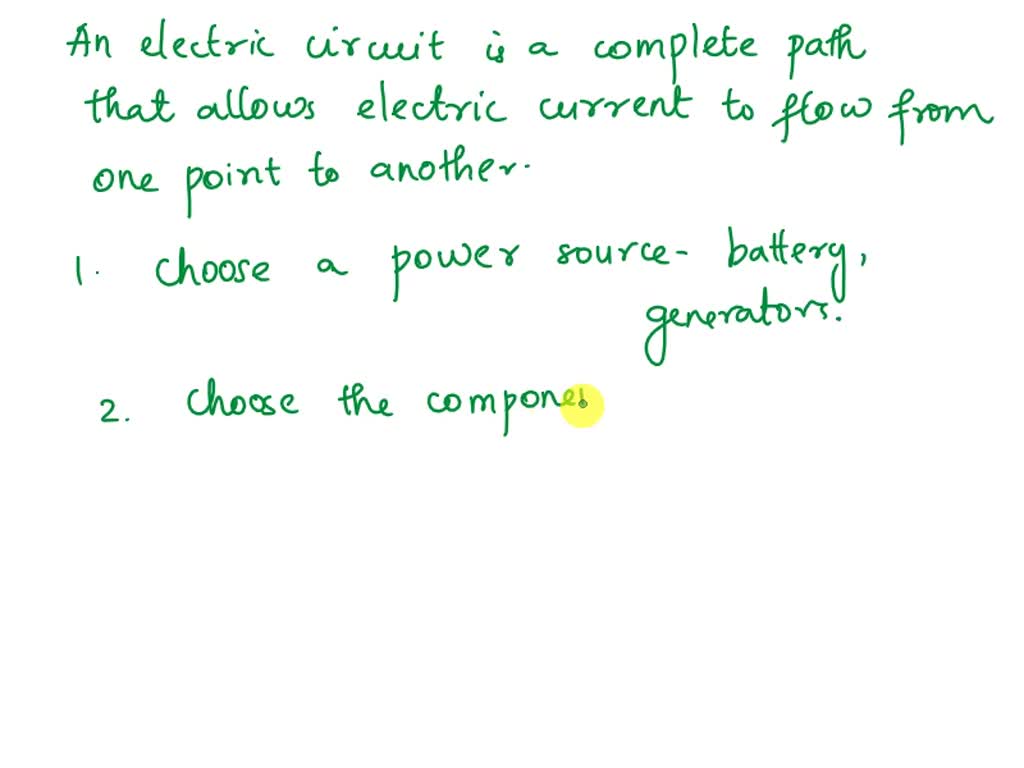 An electric circuit is a complete path
that allows electric current to flow from
one point to another.
1. Choose a power source- battery,
generators.
2. Choose the compone